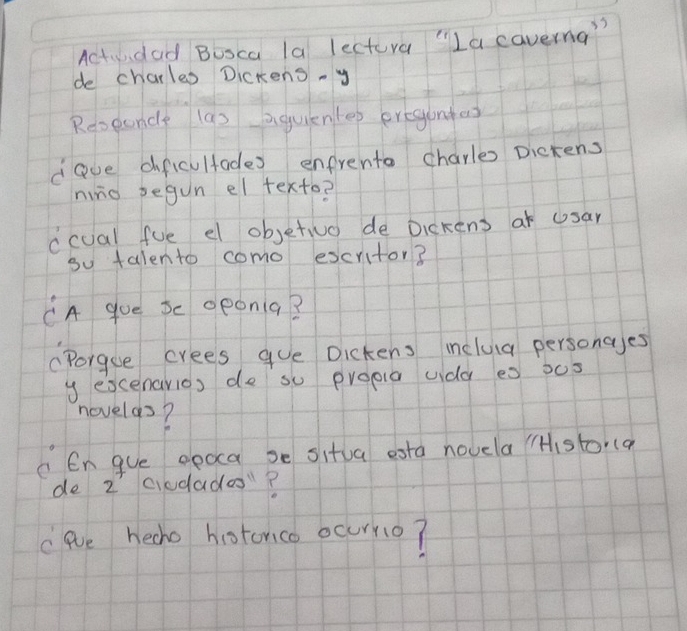 Actividad Busca la lectura "La caverna"
de charles Dickens - y
Responde las siguientes preguntas
¿Que dificultades enfrento charles Dickens
niño segun el texto?
¿cual fue el objetivo de Dickens al usar
su talento como escritor?
¿A que se oponia?
¿Porque crees que Dickens incluia personajes
y escenarios de su propia vida es sus
novelas?
¿En que epoca se situa esta novela "Historia
de 2 ciudades"?
¿Que hecho historico ocurrio?